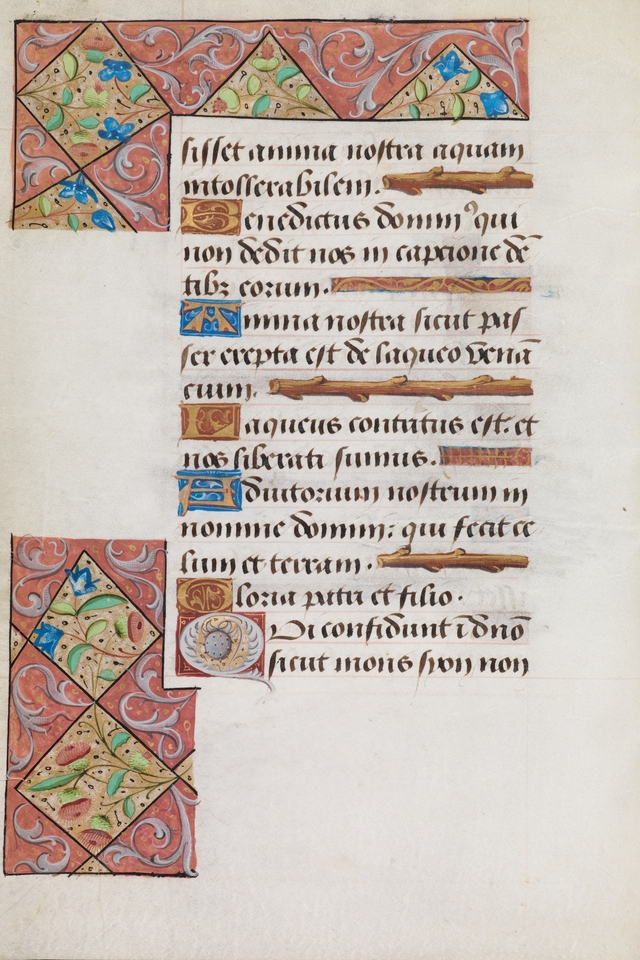 sisset anima nostra aquam
intollerabilem.
Benedictus domin⁹ qui
non dedit nos in capcione de͞
tibꝫ eorum.
Anima nostra sicut pas
ser erepta est de laqueo vena͞
cium.
Laqueus contritus est: et
nos liberati sumus.
Adiutorium nostrum in
nomine domini: qui fecit ce
lum et terram.
Gloria patri et filio.
Qui confidunt i͞ dn͞o
sicut mons syon non